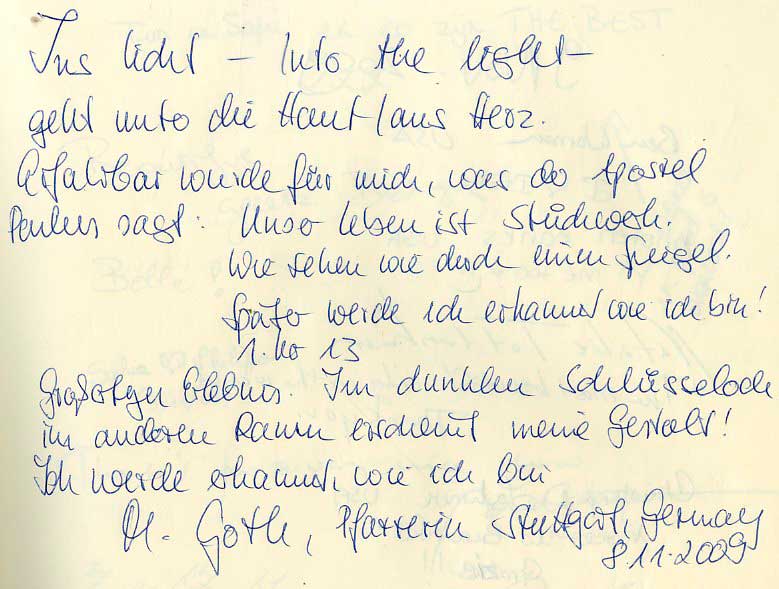 Ins Licht – Into the light –
geht unto die Haut / ans Herz.
Erfahrbar wurde für mich, was der Apostel
Paulus sagt: Unser Leben ist Stückwerk.
Wir sehen wie durch einen Spiegel.
Später werde ich erkannt wie ich bin!
1. Kor 13
Großartiges Erlebnis. Im dunklen Schlüsseloch
im anderen Raum erscheint meine Gestalt!
Ich werde erkannt, wie ich bin
M. Goth, Pfarrerin Stuttgart, Germany
8.11.2009